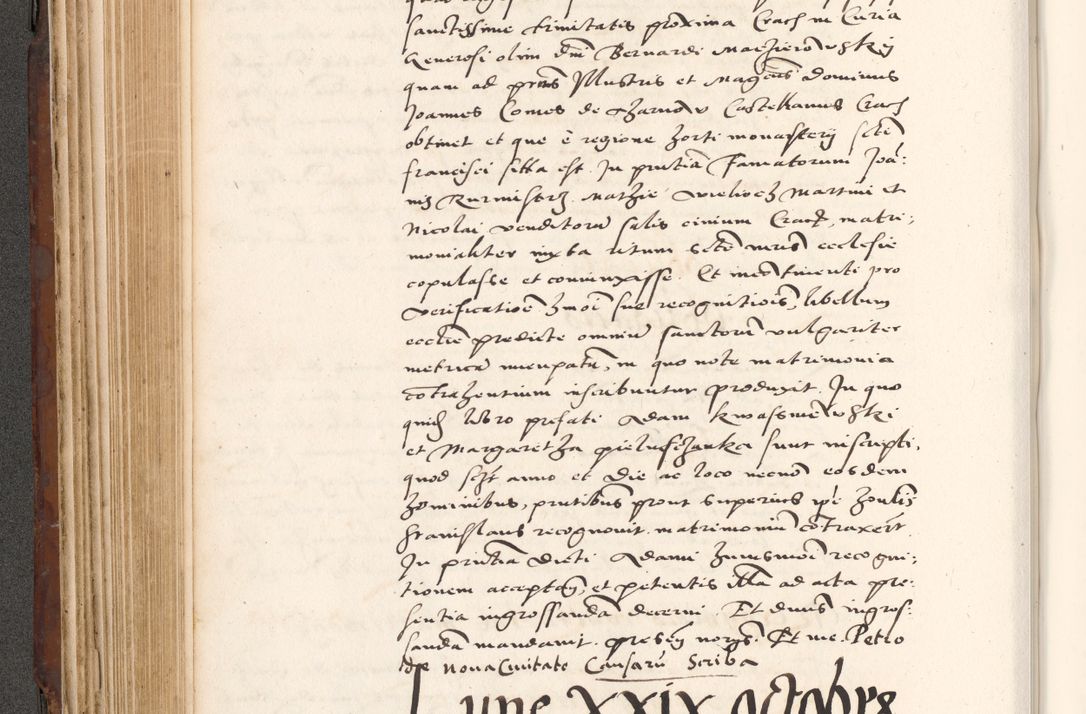 sanctissime trinitatis proxima Crach in Curia
Generosi olim dni Bernardi Maczieiowsky
quam ad prns Illustris et Magcus dominus
Joannes Comes de Tharnow Castellanus Crach
obtinet et que è regione horti monasterij scti
francisci sitta est. In pntia Famatorum Joan:
nis Kurmistrz. Mathie Wielioch Martini et
Nicolai venditoru salis civium Crach, matri:
monialiter iuxta ritum scte mris ecclesie
copulasse et coniunxisse. Et incontinenti pro
verificatioe hmoi sue recognitiois, libellum
ecclie predicte omniu sanctoru vulgariter
metrica nuncupatu, in quo note matrimonia
cotrahentium inscribuntur produxit. In quo
quid libro prefati Adam Kwassniewsky
et Margaretha pieluschanka sunt inscripti,
quod sczt anno et die ac loco necno eosdem
hominibus, pntibus prout superius ipe honlis
Stanislaus recognovit matrimoniu cotraxert
In pntia dicti Adami huiusmoi recogni:
tionem acceptan, et petentis illa ad acta pre:
sentia ingrossanda decerni. Et dnus ingros:
sanda mandavit. presen noris. Et me. Petro
de Nova Civitate Causaru Scriba
Lune XXIX octobrs